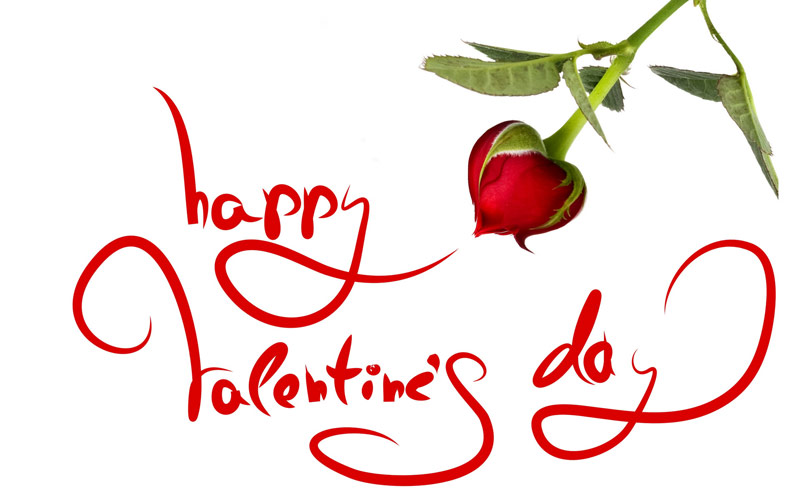 happy
Valentine's day